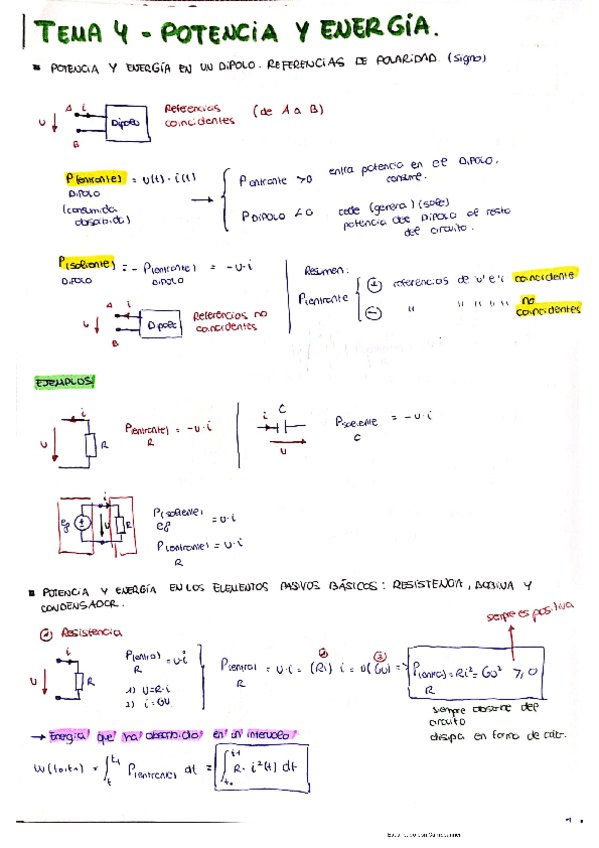 TEMA 4 - POTENCIA Y ENERGÍA.
POTENCIA Y ENERGÍA EN UN DIPOLO. REFERENCIAS DE POLARIDAD. (signo)
A i
u
Dipolo
B
Referencias coincidentes (de A a B)
P(entrante) = u(t) · i(t)
DIPOLO
(consumida
absorbida)
P entrante > 0 entra potencia en el DIPOLO.
consume.
P DIPOLO < 0 cede (genera) (sale)
potencia del DIPOLO al resto
del circuito.
P(saliente) = - P(entrante) = -u·i
DIPOLO DIPOLO
Resumen:
Pentrante
+ referencias de 'u' e 'i' coincidente
- " " " " " no coincidentes
A i
u
Dipolo
B
Referencias no coincidentes
EJEMPLOS
i
u R
P(entrante) = -u·i
R
i C
u
Psaliente = -u·i
C
i
eg u R
P(saliente) = u·i
eg
P(entrante) = u·i
R
POTENCIA Y ENERGÍA EN LOS ELEMENTOS PASIVOS BÁSICOS: RESISTENCIA, BOBINA Y
CONDENSADOR.
Resistencia
i
u R
P(entra) = u·i
R
1) U=R·i
2) i=GU
P(entra) = u·i = (Ri) i = u(Gu) =>
R
P(entra) = Ri² = Gu² ≥ 0
R
siempre es positiva
siempre absorbe del
circuito
disipa en forma de calor.
→ Energía que ha absorbido en un intervalo
P(entrante) dt = ∫ R · i²(t) dt